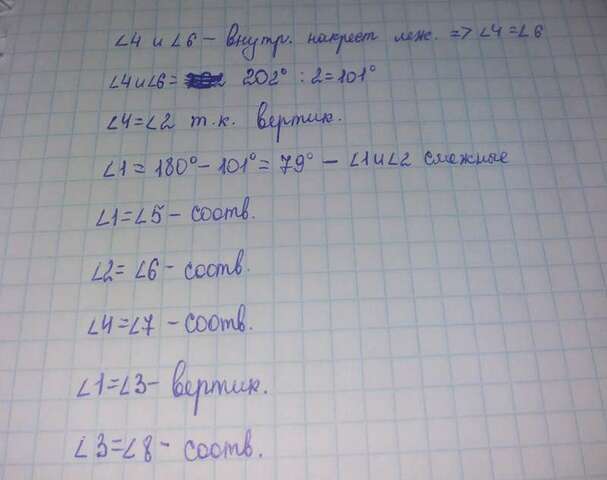 ∠4 и ∠6 – внутр. накрест леж. => ∠4=∠6
∠4и∠6= 202° : 2=101°
∠4=∠2 т.к. вертик.
∠1 = 180°– 101°= 79° – ∠1и∠2 смежные
∠1=∠5– соотв.
∠2= ∠6– соотв.
∠4=∠7 – соотв.
∠1=∠3– вертик.
∠3=∠8– соотв.